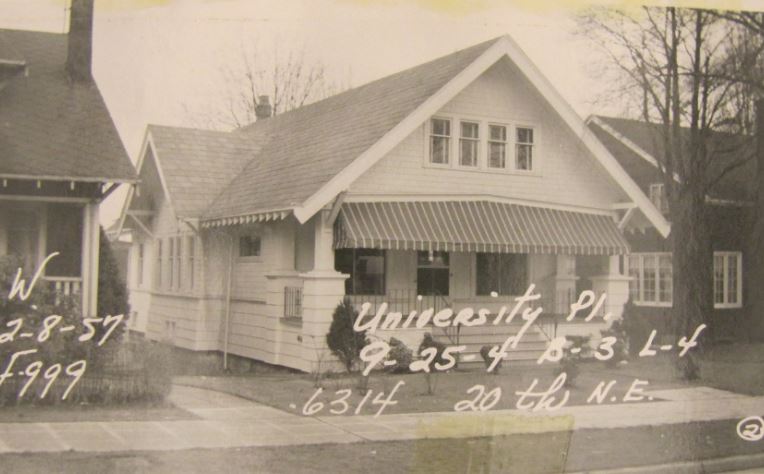 W
2-8-57
F-999
University Pl.
9-25-4 B-3 L-4
6314 20th N.E.
2